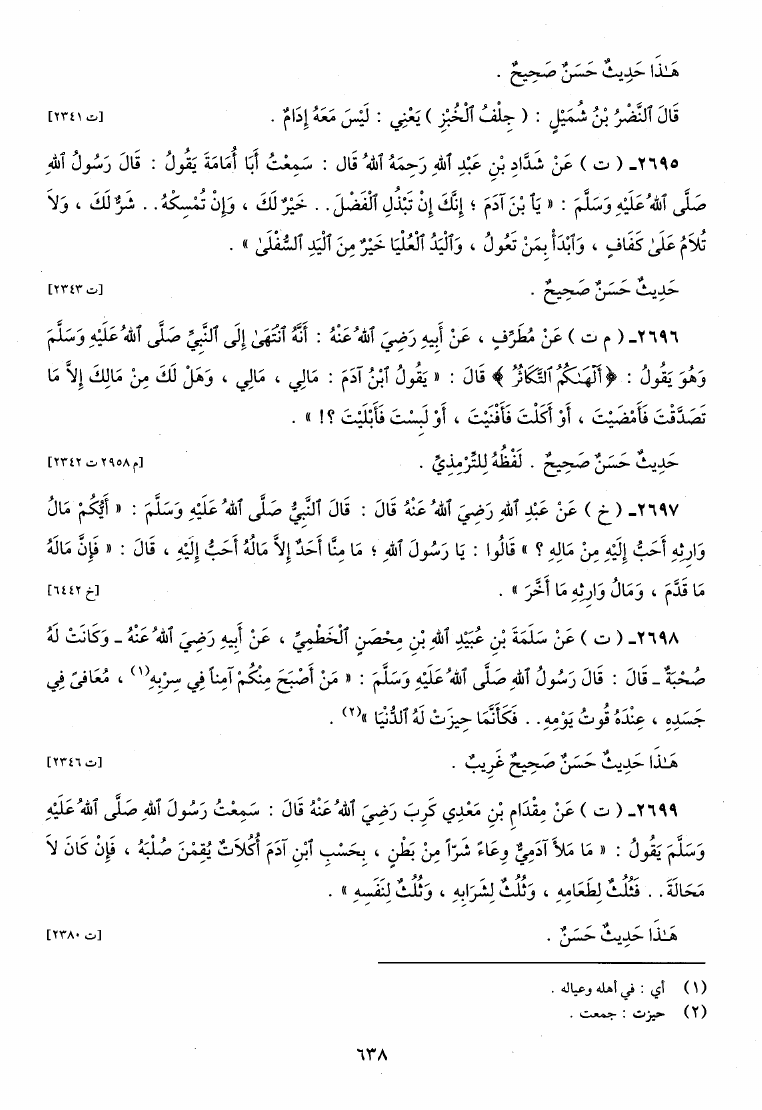 هَـٰذَا حَدِيثٌ حَسَنٌ صَحِيحٌ .
قَالَ ٱلنَّضْرُ بْنُ شُمَيْلٍ : ( جِلْفُ ٱلْخُبْزِ ) يَعْنِي : لَيْسَ مَعَهُ إِدَامٌ . [ت ٢٣٤١]
٢٦٩٥ـ ( ت ) عَنْ شَدَّادِ بْنِ عَبْدِ ٱللهِ رَحِمَهُ ٱللهُ قَال : سَمِعْتُ أَبَا أُمَامَةَ يَقُولُ : قَالَ رَسُولُ ٱللهِ
صَلَّى ٱللهُ عَلَيْهِ وَسَلَّمَ : « يَا بْنَ آدَمَ ؛ إِنَّكَ إِنْ تَبْذُلِ ٱلْفَضْلَ . . خَيْرٌ لَكَ ، وَإِنْ تُمْسِكْهُ . . شَرٌّ لَكَ ، وَلاَ
تُلاَمُ عَلَىٰ كَفَافٍ ، وَٱبْدَأْ بِمَنْ تَعُولُ ، وَٱلْيَدُ ٱلْعُلْيَا خَيْرٌ مِنَ ٱلْيَدِ ٱلسُّفْلَىٰ » .
حَدِيثٌ حَسَنٌ صَحِيحٌ . [ت ٢٣٤٣]
٢٦٩٦ـ ( م ت ) عَنْ مُطَرِّفٍ ، عَنْ أَبِيهِ رَضِيَ ٱللهُ عَنْهُ : أَنَّهُ ٱنْتَهَىٰ إِلَى ٱلنَّبِيِّ صَلَّى ٱللهُ عَلَيْهِ وَسَلَّمَ
وَهُوَ يَقُولُ : ﴿أَلْهَىٰكُمُ ٱلتَّكَاثُرُ ﴾ قَالَ : « يَقُولُ ٱبْنُ آدَمَ : مَالِي ، مَالِي ، وَهَلْ لَكَ مِنْ مَالِكَ إِلاَّ مَا
تَصَدَّقْتَ فَأَمْضَيْتَ ، أَوْ أَكَلْتَ فَأَفْنَيْتَ ، أَوْ لَبِسْتَ فَأَبْلَيْتَ ؟! » .
حَدِيثٌ حَسَنٌ صَحِيحٌ . لَفْظُهُ لِلتِّرْمِذِيِّ . [م ٢٩٥٨ ت ٢٣٤٢]
٢٦٩٧ـ ( خ ) عَنْ عَبْدِ ٱللهِ رَضِيَ ٱللهُ عَنْهُ قَالَ : قَالَ ٱلنَّبِيُّ صَلَّى ٱللهُ عَلَيْهِ وَسَلَّمَ : « أَيُّكُمْ مَالُ
وَارِثِهِ أَحَبُّ إِلَيْهِ مِنْ مَالِهِ ؟ » قَالُوا : يَا رَسُولَ ٱللهِ ؛ مَا مِنَّا أَحَدٌ إِلاَّ مَالُهُ أَحَبُّ إِلَيْهِ ، قَالَ : « فَإِنَّ مَالَهُ
مَا قَدَّمَ ، وَمَالُ وَارِثِهِ مَا أَخَّرَ » . [خ ٦٤٤٢]
٢٦٩٨ـ ( ت ) عَنْ سَلَمَةَ بْنِ عُبَيْدِ ٱللهِ بْنِ مِحْصَنٍ ٱلْخَطْمِيِّ ، عَنْ أَبِيهِ رَضِيَ ٱللهُ عَنْهُ ـ وَكَانَتْ لَهُ
صُحْبَةٌ ـ قَالَ : قَالَ رَسُولُ ٱللهِ صَلَّى ٱللهُ عَلَيْهِ وَسَلَّمَ : « مَنْ أَصْبَحَ مِنْكُمْ آمِناً فِي سِرْبِهِ(١) ، مُعَافىً فِي
جَسَدِهِ ، عِنْدَهُ قُوتُ يَوْمِهِ . . فَكَأَنَّمَا حِيزَتْ لَهُ ٱلدُّنْيَا »(٢) .
هَـٰذَا حَدِيثٌ حَسَنٌ صَحِيحٌ غَرِيبٌ . [ت ٢٣٤٦]
٢٦٩٩ـ ( ت ) عَنْ مِقْدَامِ بْنِ مَعْدِي كَرِبَ رَضِيَ ٱللهُ عَنْهُ قَالَ : سَمِعْتُ رَسُولَ ٱللهِ صَلَّى ٱللهُ عَلَيْهِ
وَسَلَّمَ يَقُولُ : « مَا مَلأَ آدَمِيٌّ وِعَاءً شَرّاً مِنْ بَطْنٍ ، بِحَسْبِ ٱبْنِ آدَمَ أُكُلاَتٌ يُقِمْنَ صُلْبَهُ ، فَإِنْ كَانَ لاَ
مَحَالَةَ . . فَثُلُثٌ لِطَعَامِهِ ، وَثُلُثٌ لِشَرَابِهِ ، وَثُلُثٌ لِنَفَسِهِ » .
هَـٰذَا حَدِيثٌ حَسَنٌ . [ت ٢٣٨٠]
(١) أي : في أهله وعياله .
(٢) حيزت : جمعت .
٦٣٨